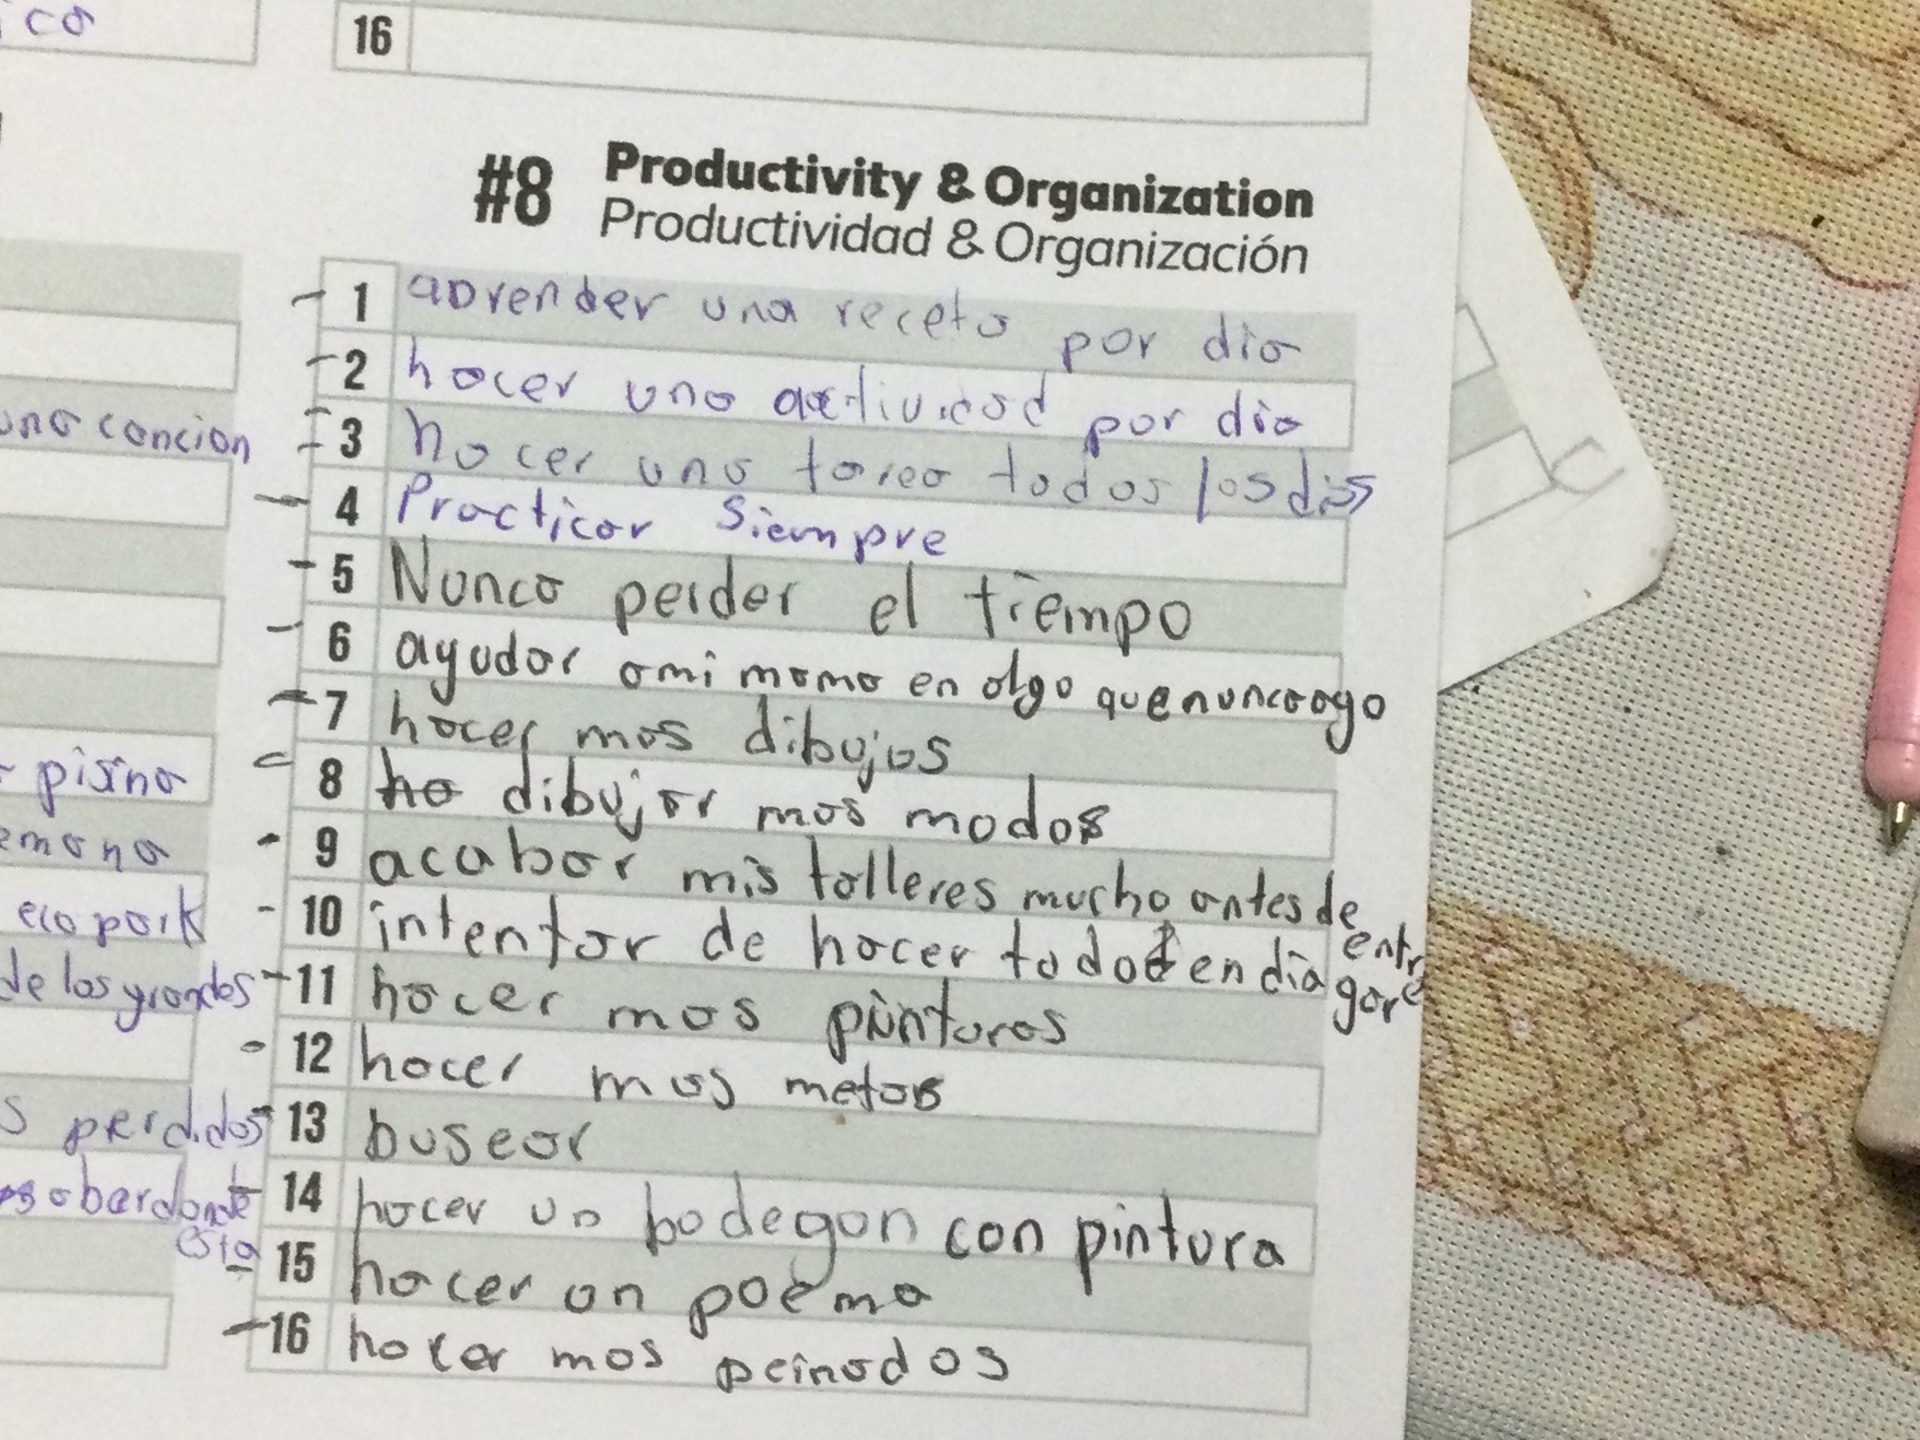 ico
16
#8 Productivity & Organization
Productividad & Organización
1 aprender una receta por dia
2 hacer una actividad por dia
una cancion
3 hacer una tarea todos los dias
4 Practicar Siempre
5 Nunca perder el tiempo
6 ayudar a mi mama en algo que nunca ago
7 hacer mas dibujos
pisina
8 ha dibujar mas modas
emana
9 acabar mis talleres mucho antes de entregare
eco park
10 intentar de hacer todo en dia
de los grandes
11 hacer mas pinturas
12 hacer mas metas
s perdidos
13 buscar
saber donde esta
14 hacer un bodegon con pintura
15 hacer un poema
16 hacer mas peinados